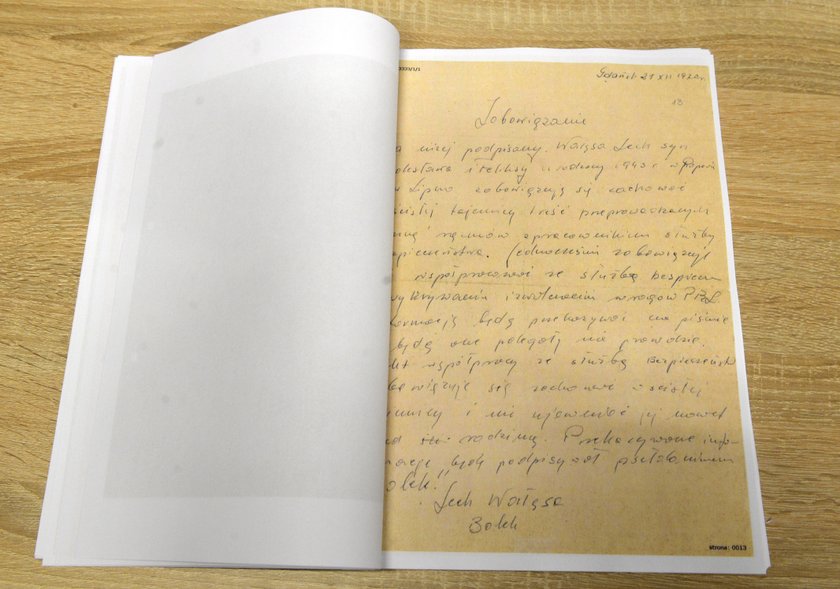 0003/1/1
Gdańsk 21 XII 1970r.
13
Zobowiązanie
a niżej podpisany. Wałęsa Lech syn
olesława i Feliksy urodzony 1943 r w Popowi
Lipno zobowiązują się zachować
ścisłej tajemnicy treść przeprowadzonych
mną rozmów z pracownikiem służby
zpieczeństwa. Jednocześnie zobowiązuję
współpracować ze służbą bezpiecz
wykrywaniu i zwalczaniu wrogów PRL
formacją będę przekazywać na piśmie
będą one polegały na prawdzie.
kt współpracy ze służbą Bezpieczeńst
bowiązuje się zachować w ścisłej
jemnicy i nie ujawniać ją nawet
rodziną. Przekazywane info-
macje będę podpisywał psełdonimem
olek."
Lech Wałęsa
Bolek
strona: 0013